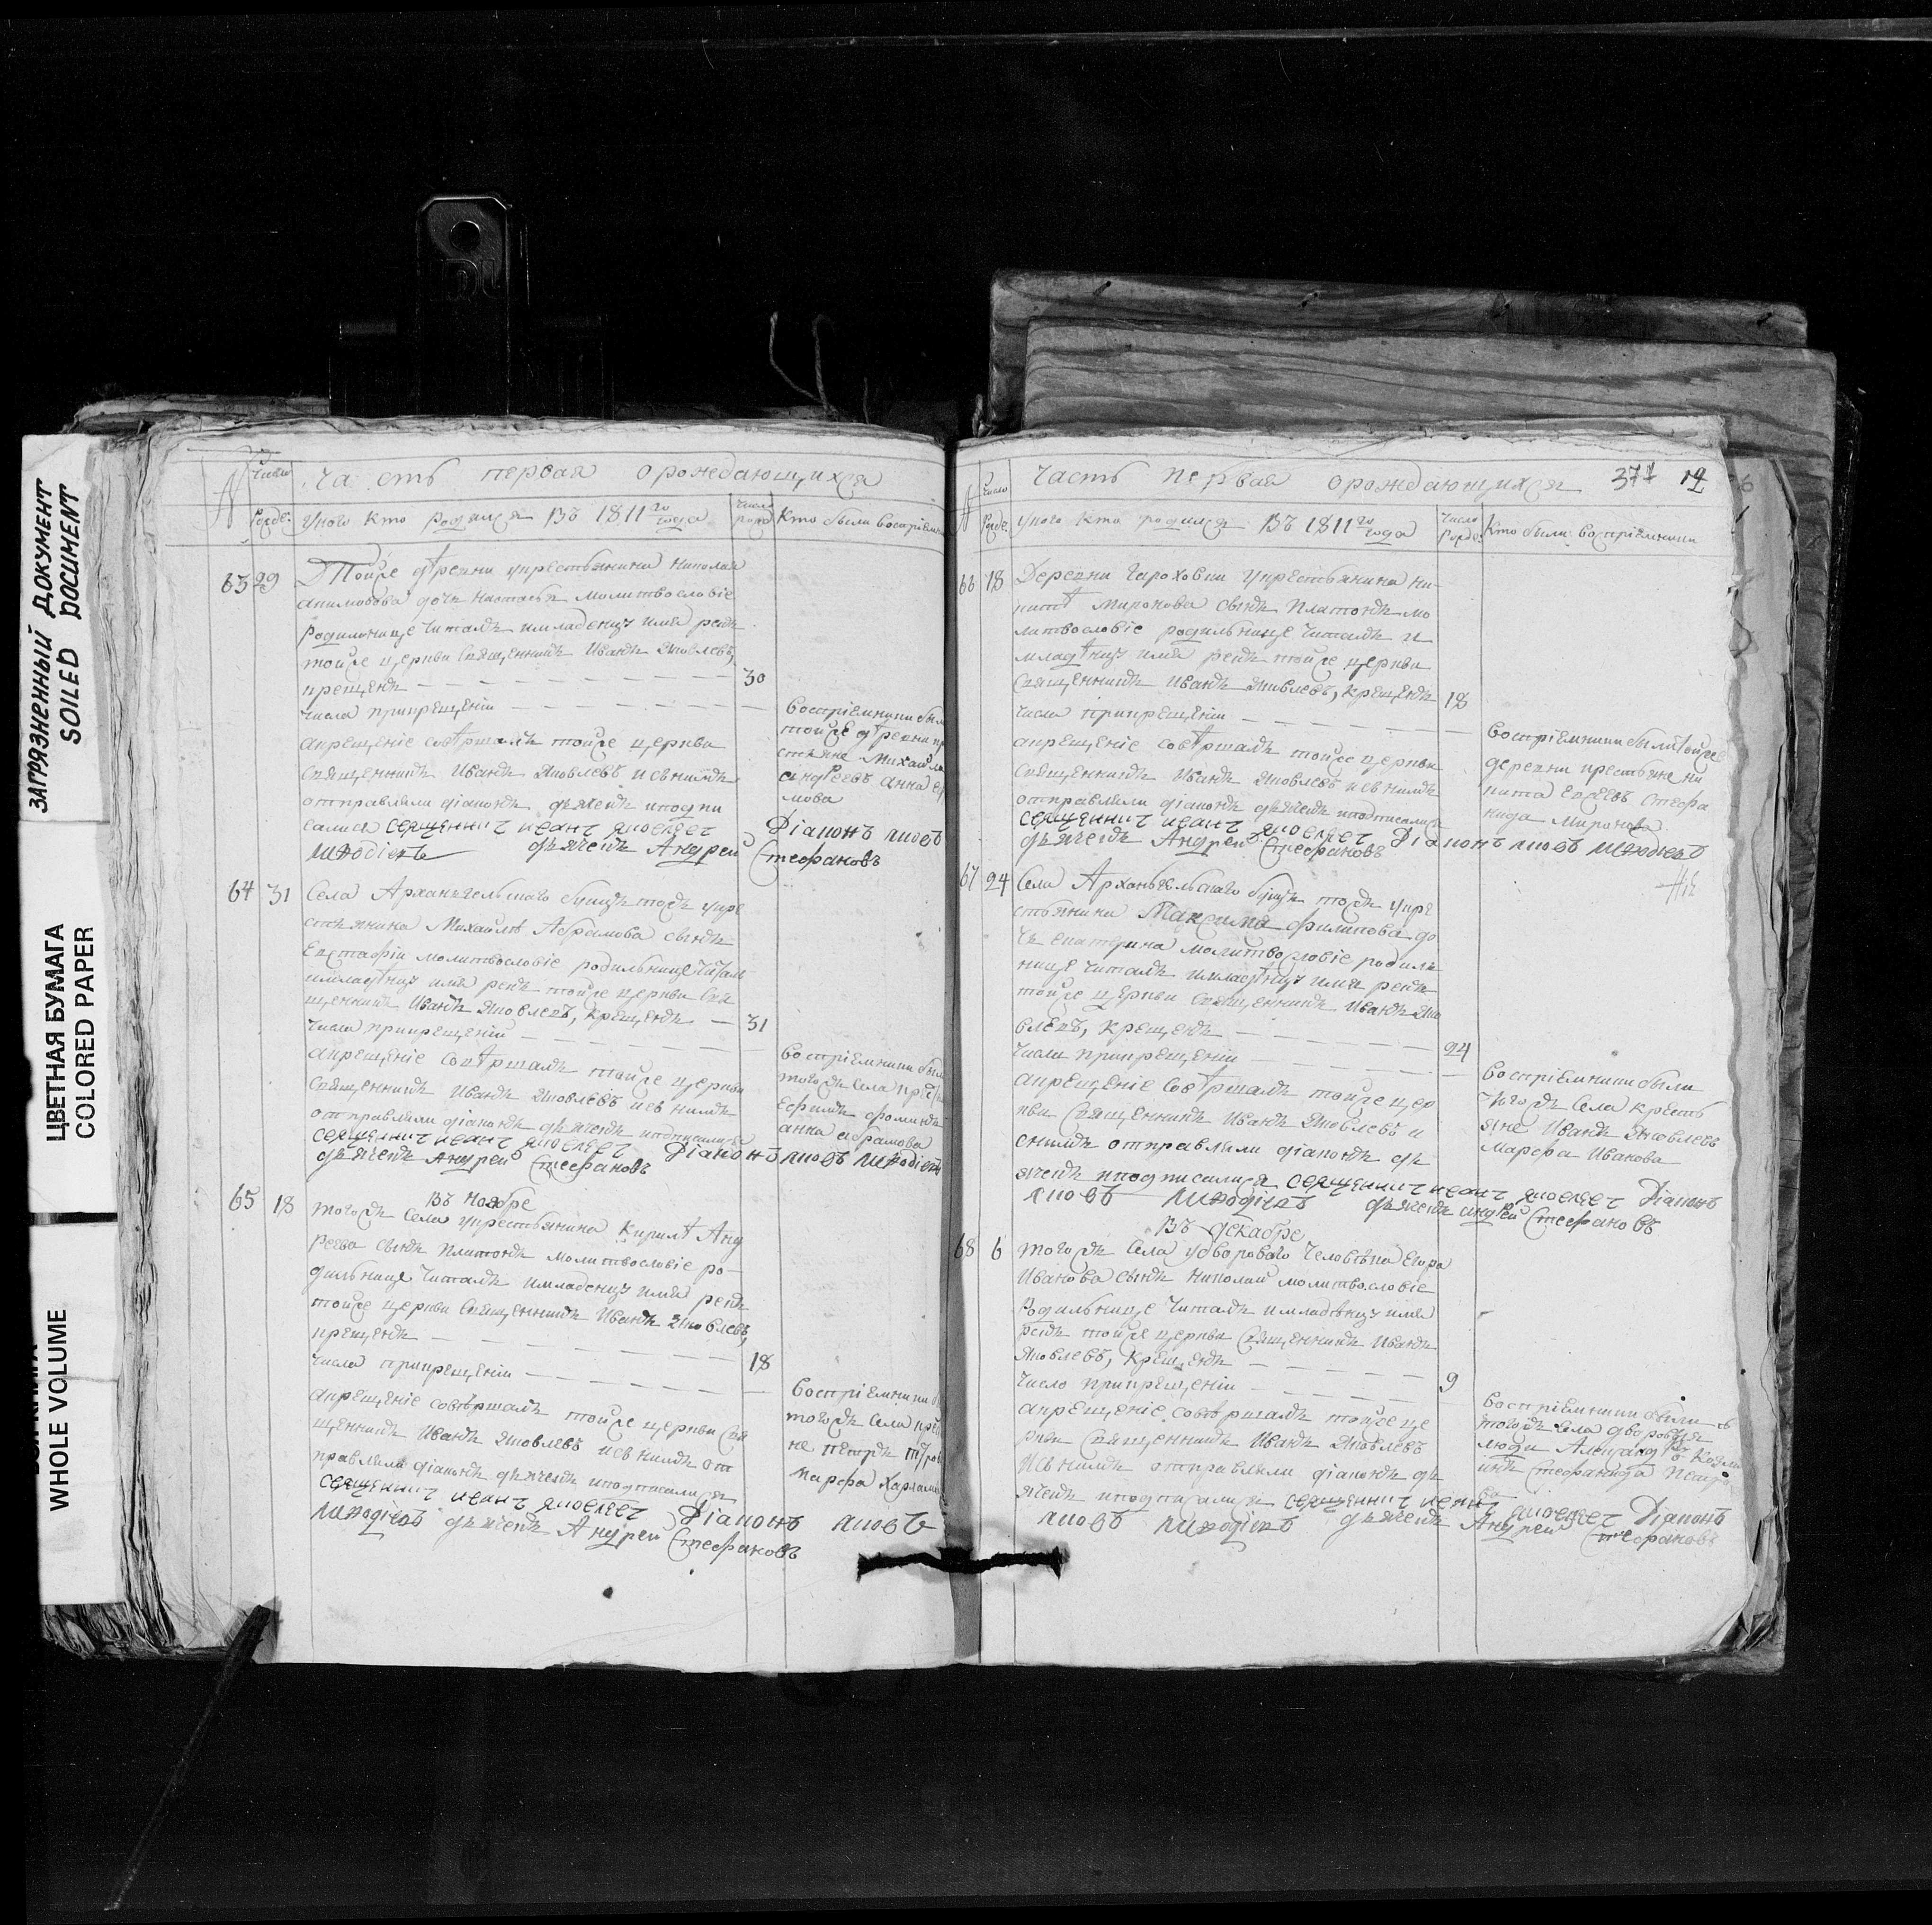 ЗАГРЯЗНЕННЫЙ ДОКУМЕНТ
SOILED DOCUMENT
ЦВЕТНАЯ БУМАГА
COLORED PAPER
WHOLE VOLUME
№ Число Часть первая орождающихся
Рожде. Укого кто родился Въ 1811го года Число Кто были восприем
63 29 Тойже деревни укрестьянина николая
дочь настасья молитвословіе
Родилнице читалъ имладенцу имя рекъ
тойже церкви Священникъ Иванъ Яковлевъ,
крещенъ 30
Числа прикрещеніи
акрещеніе совершалъ тойже церкви
Священникъ Иванъ Яковлевъ исънимъ
отправляли діаконъ дьячекъ иподпи
сались священникъ иванъ яковлевъ
Восприемники был
тойже деревни кр
стьяне Михайла
андреевъ анна
мова
Діаконъ яковъ
дьячекъ Андрей Стефановъ
64 31 Села Архангельскаго тожъ укре
стьянина Михайлы Абрамова сынъ
Евстафій молитвословіе родильнице читалъ
имладенцу имя рекъ тойже церкви Свя
щенникъ Иванъ Яковлевъ, крещенъ 31
Числа прикрещеніи
акрещеніе совершалъ тойже церкви
Священникъ Иванъ Яковлевъ исънимъ
отправляли діаконъ дьячекъ иподписались
священникъ иванъ яковлевъ Діаконъ яковъ
дьячекъ Андрей Стефановъ
Восприемники были
тогожъ Села
Ефимъ фоминъ
анна абрамова
Въ Ноябре
65 18 тогожъ Села укрестьянина Кирилы Анд
реева сынъ платонъ молитвословіе ро-
дильнице читалъ имладенцу имя рекъ
тойже церкви Священникъ Иванъ Яковлевъ,
крещенъ 18
Числа прикрещеніи
акрещеніе совершалъ тойже церкви Свя
щенникъ Иванъ Яковлевъ исънимъ от
правляли діаконъ дьячекъ иподписались
священникъ иванъ яковлевъ Діаконъ яковъ
дьячекъ Андрей Стефановъ
Восприемники
тогожъ Села
не петръ
марфа
№ Число Часть первая орождающихся 377
Рожде. Укого кто родился Въ 1811го года Число Рожде. Кто были Восприемники
66 18 Деревни Гароховки укрестьянина ни-
киты Миронова сынъ Платонъ мо
литвословіе родильнице читалъ и
младенцу имя рекъ тойже церкви
Священникъ Иванъ Яковлевъ, крещенъ 18
Числа прикрещеніи
акрещеніе совершалъ тойже церкви
Священникъ Иванъ Яковлевъ исънимъ
отправляли діаконъ дьячекъ иподписались
священникъ иванъ яковлевъ Діаконъ яковъ
дьячекъ Андрей Стефановъ
Восприемники были тойже
деревни крестьяне ни
кита Стефа
нида Миронова
67 24 Села Архангельскаго тожъ укре
стьянина Максима Филипова до
чь екатерина молитвословіе родиль
нице читалъ имладенцу имя рекъ
тойже церкви Священникъ Иванъ Яко
влевъ, крещенъ 24
Числа прикрещеніи
акрещеніе совершалъ тойже цер
кви Священникъ Иванъ Яковлевъ и
снимъ отправляли діаконъ дь
ячекъ иподписались священникъ иванъ яковлевъ Діаконъ
яковъ дьячекъ андрей Стефановъ
Восприемники были
тогожъ Села кресть
яне Иванъ Яковлевъ
Марфа Иванова
Въ декабре
68 6 тогожъ Села удвороваго человека Егора
Иванова сынъ Николай молитвословіе
Родильнице читалъ имладенцу имя
рекъ тойже церкви Священникъ Иванъ
Яковлевъ, крещенъ 9
Число прикрещеніи
акрещеніе совершалъ тойже це
ркви Священникъ Иванъ Яковлевъ
исънимъ отправляли діаконъ дь
ячекъ иподписались священникъ иванъ яковлевъ Діаконъ
яковъ дьячекъ Андрей Стефановъ
Восприемники были
тогожъ Села дворовыя
люди Александръ
Стефанида